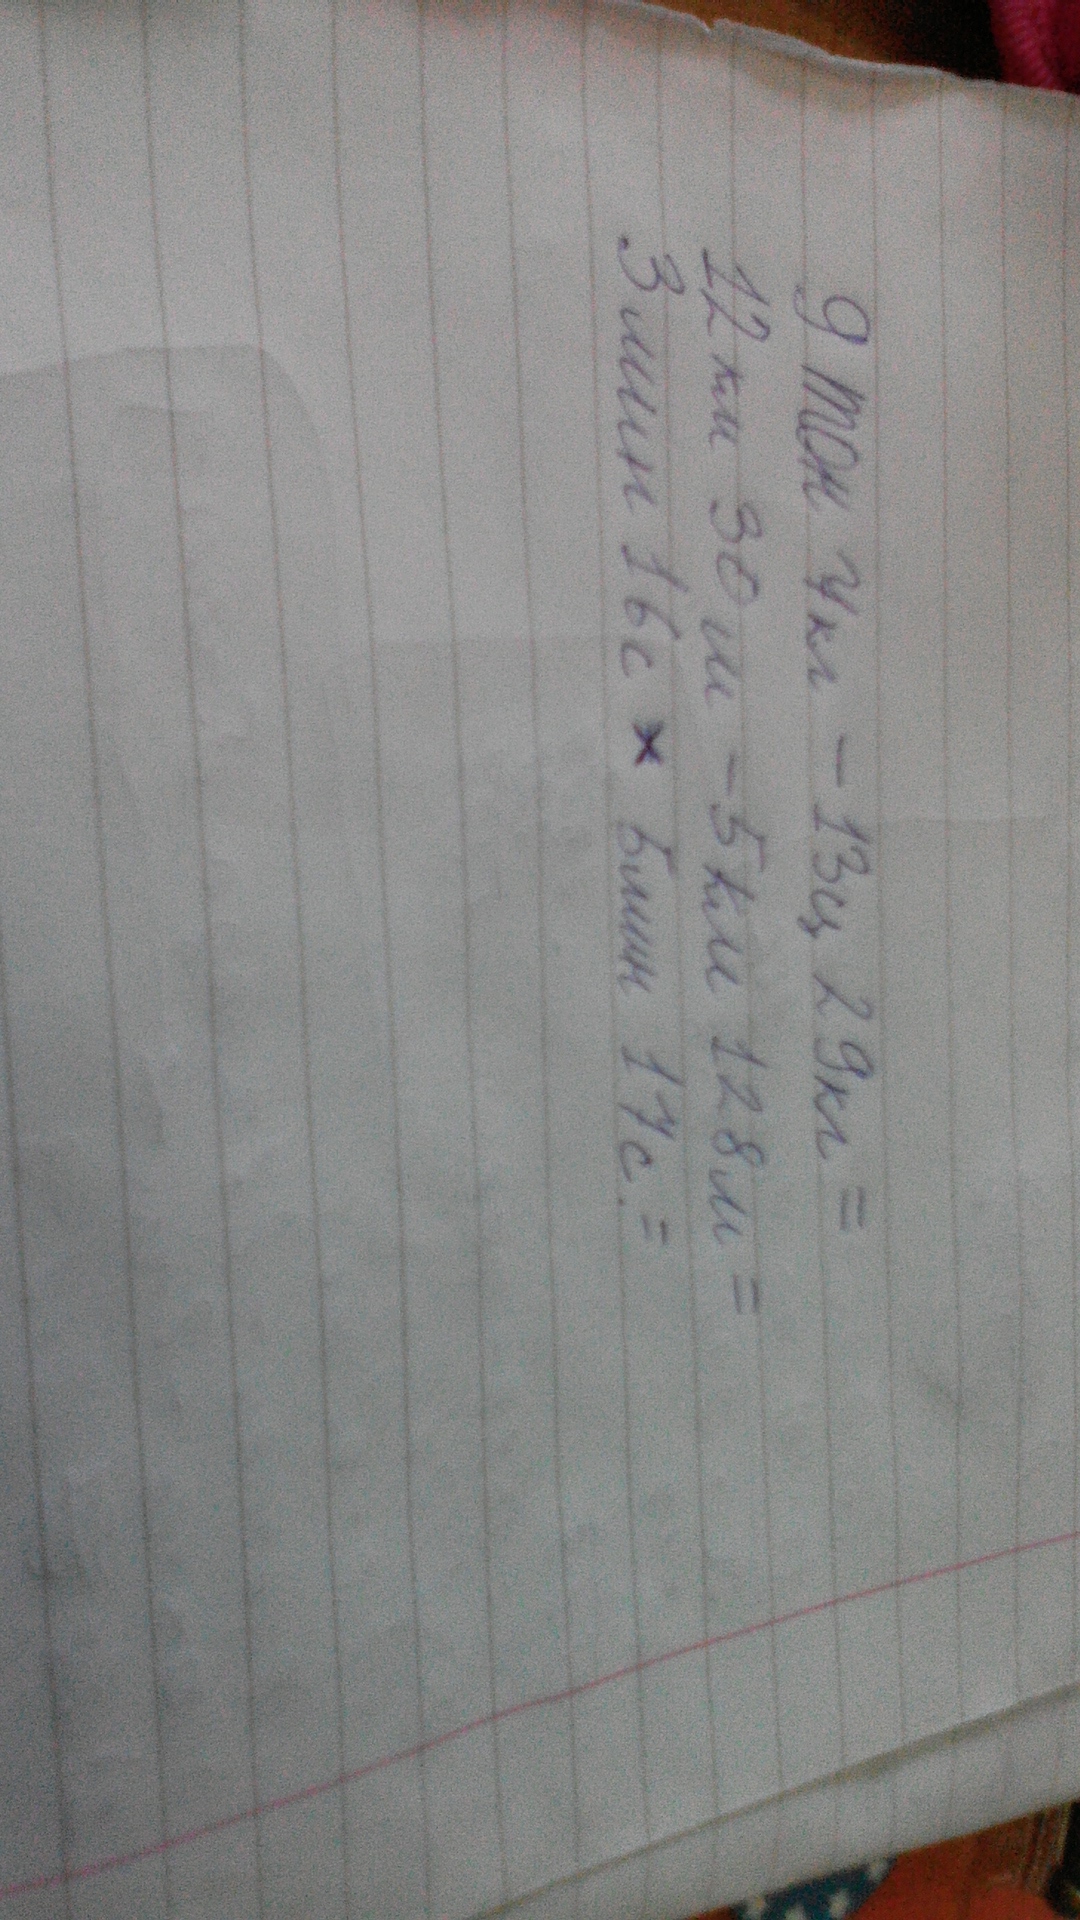 9 тон 4кг - 13ц 29кг =
12 км 30 м - 5 км 128м =
3 мин 16с × 5мин 17с. =